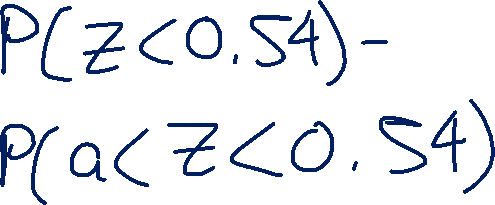 P(Z<0.54)-
P(a<Z<0.54)